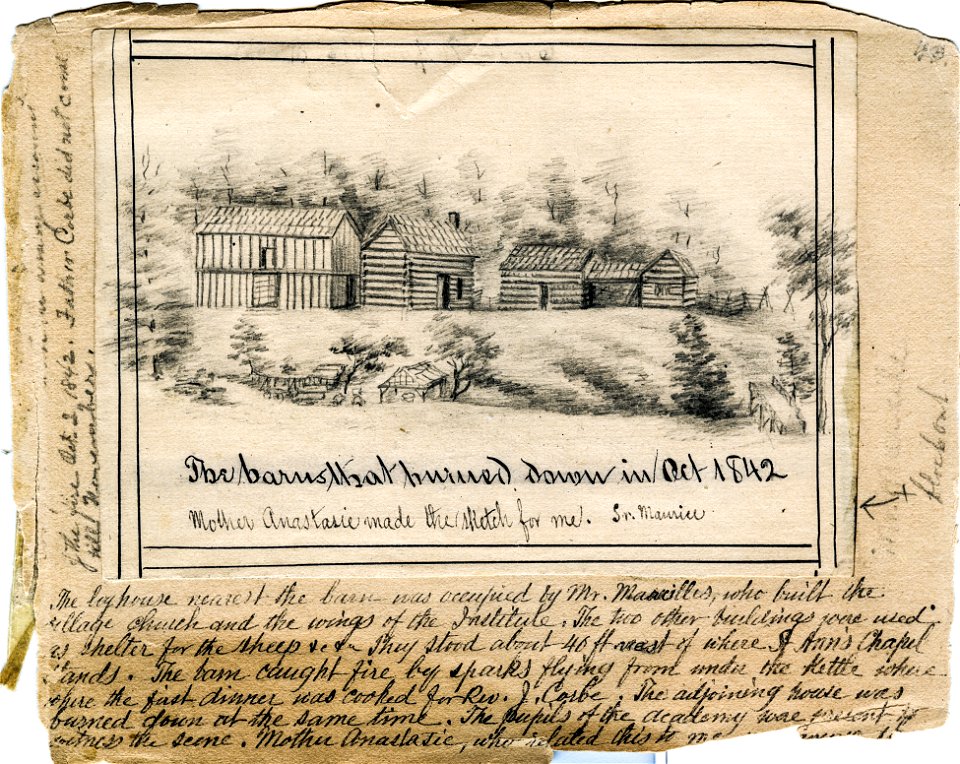 43.
The fire Oct 2 1842. Father Corbe did not come
till November.
The barns, that burned, down in Oct 1842
Mother Anastasie made the sketch for me. Sr. Maurice
The loghouse nearest the barn was occupied by Mr. Marvilles, who built the
village church and the wings of the Institute. The two other buildings were used
as shelter for the sheep &c &c They stood about 40 ft west of where St Ann's Chapel
stands. The barn caught fire by sparks flying from under the kettle where
the first dinner was cooked for Rev. J. Corbe. The adjoining house was
burned down at the same time. The pupils of the academy were present to
witness the scene. Mother Anastasie, who related this to me